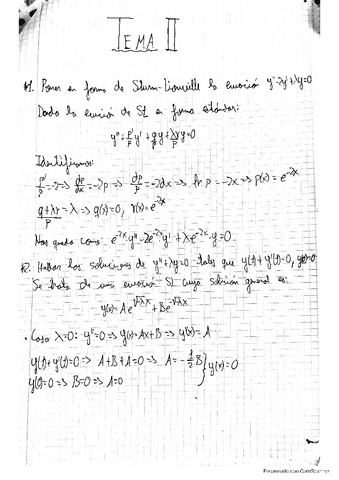 TEMA II
#1. Poner en forma de Sturm-Liouville la ecuación y''-2y'+λy=0
Dada la ecuación de SL en forma estándar:
y''+p'/p y'+(q/p)y+(λr/p)y=0
Identificamos:
p'/p=-2=> dp/dx=-2p => dp/p=-2dx => ln p=-2x => p(x)=e^{-2x}
(q+λr)/p=λ => q(x)=0, r(x)=e^{-2x}
Nos queda como: e^{-2x}y''-2e^{-2x}y'+λe^{-2x}y=0.
#2. Hallar las soluciones de y''+λy=0 tales que y(1)+y'(1)=0, y(0)=0
Se trata de una ecuación SL cuya solución general es:
y(x)=Ae^{√-λ x}+Be^{-√-λ x}
· Caso λ=0: y''=0 => y(x)=Ax+B => y'(x)=A
y(1)+y'(1)=0 => A+B+A=0 => A=-1/2 B } y(x)=0
y(0)=0 => B=0 => A=0
Escaneado con CamScanner